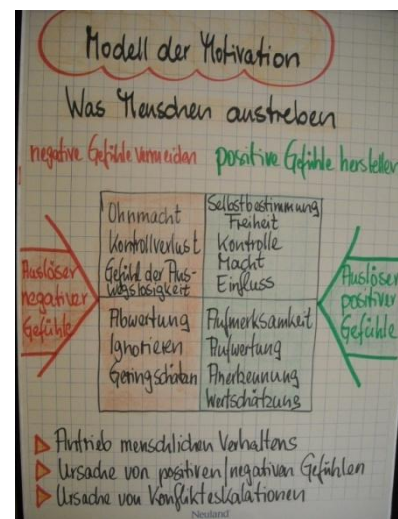 Modell der Motivation
Was Menschen anstreben
negative Gefühle vermeiden
positive Gefühle herstellen
Auslöser
negativer
Gefühle
Ohnmacht
Kontrollverlust
Gefühl der Aus-
wegslosigkeit
Abwertung
Ignorieren
Geringschätzen
Selbstbestimmung
Freiheit
Kontrolle
Macht
Einfluss
Aufmerksamkeit
Aufwertung
Anerkennung
Wertschätzung
Auslöser
positiver
Gefühle
Antrieb menschlichen Verhaltens
Ursache von positiven/negativen Gefühlen
Ursache von Konflikteskalationen
Neuland